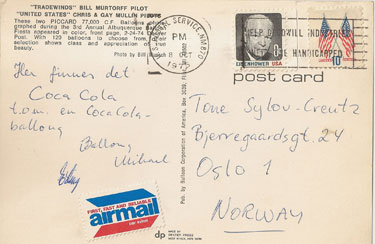 "TRADEWINDS" BILL MURTORFF PILOT
"UNITED STATES" CHRIS & GAY MULLIN PILOTS
These two PICCARD 77,000 C.F. Balloons
graphed during the 3rd Annual Albuquerque
Fiesta appeared in color, front page, 2-24-74 Denver
Post. With 120 balloons to choose from
selection shows class and appreciation of
beauty.
Photo by Bill
SERVICE, NM 870
PM
8 OCT
197
HELP GOODWILL INDUSTRIES
THE HANDICAPPED
EISENHOWER USA
8c
10c
post card
Her finnes det
Coca Cola
t.o.m. en Coca Cola-
ballong
Ballong
Michael
Tone Sylov-Creutz
Bjerregaardsgt. 24
Oslo 1
NORWAY
FIRST, FAST AND RELIABLE
airmail
PAR AVION
Pub. by Balloon Corporation of America, Box 3039,
dp
MADE BY
DEXTER PRESS
WEST NYACK, NEW YORK